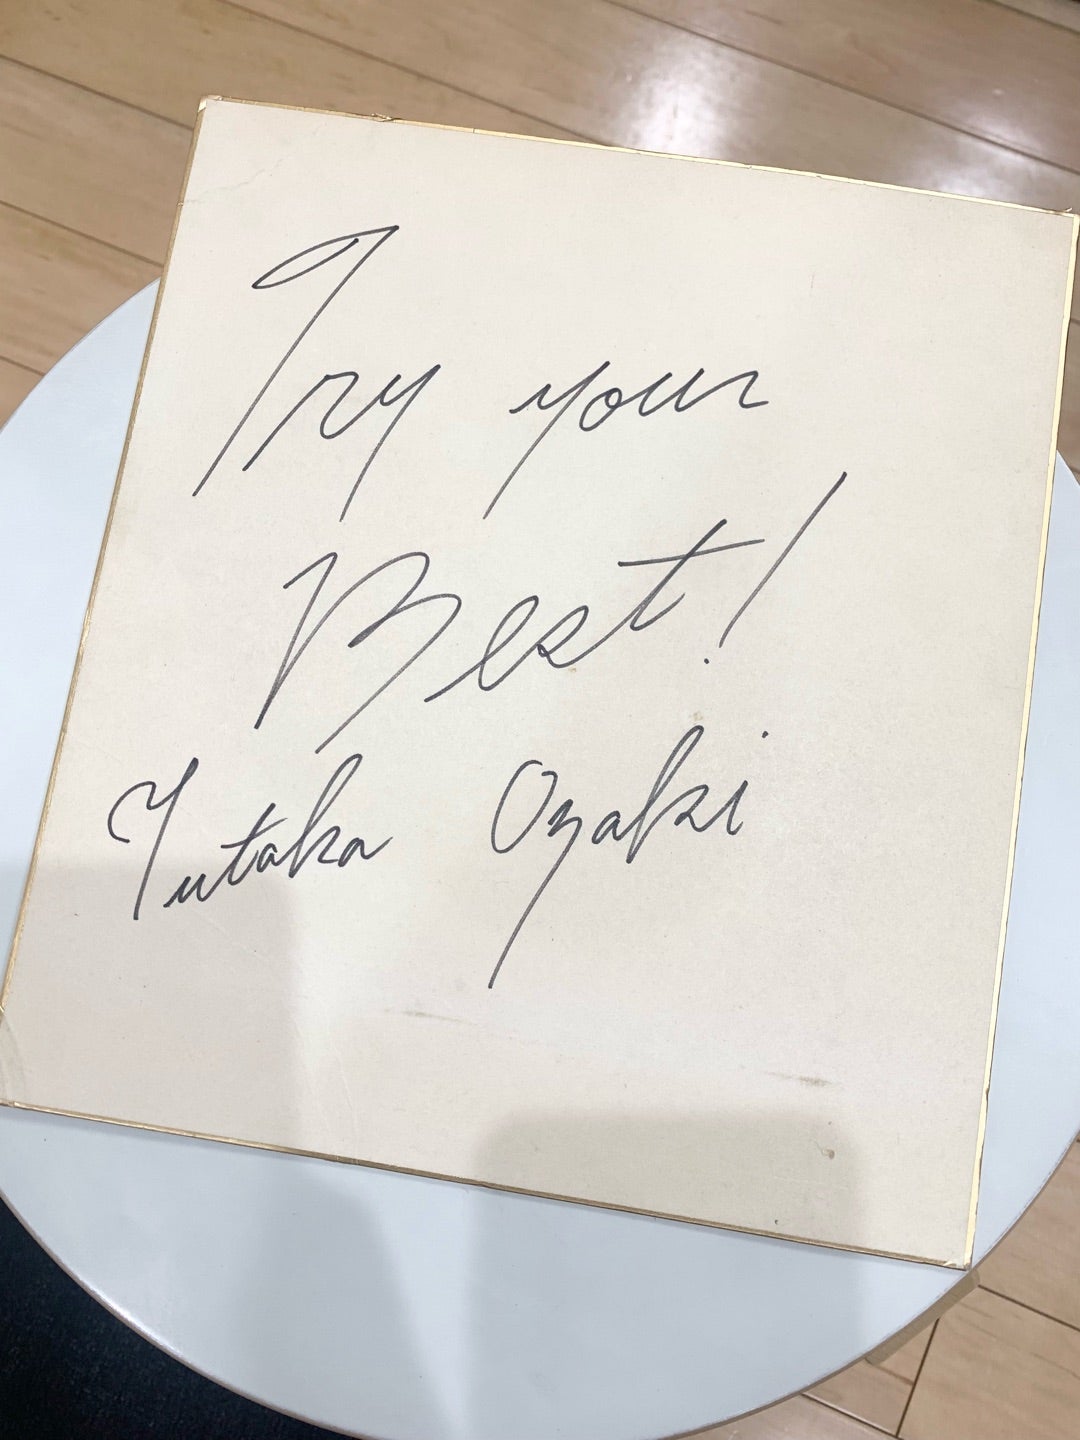 Try your
Best!
Yutaka Ozaki